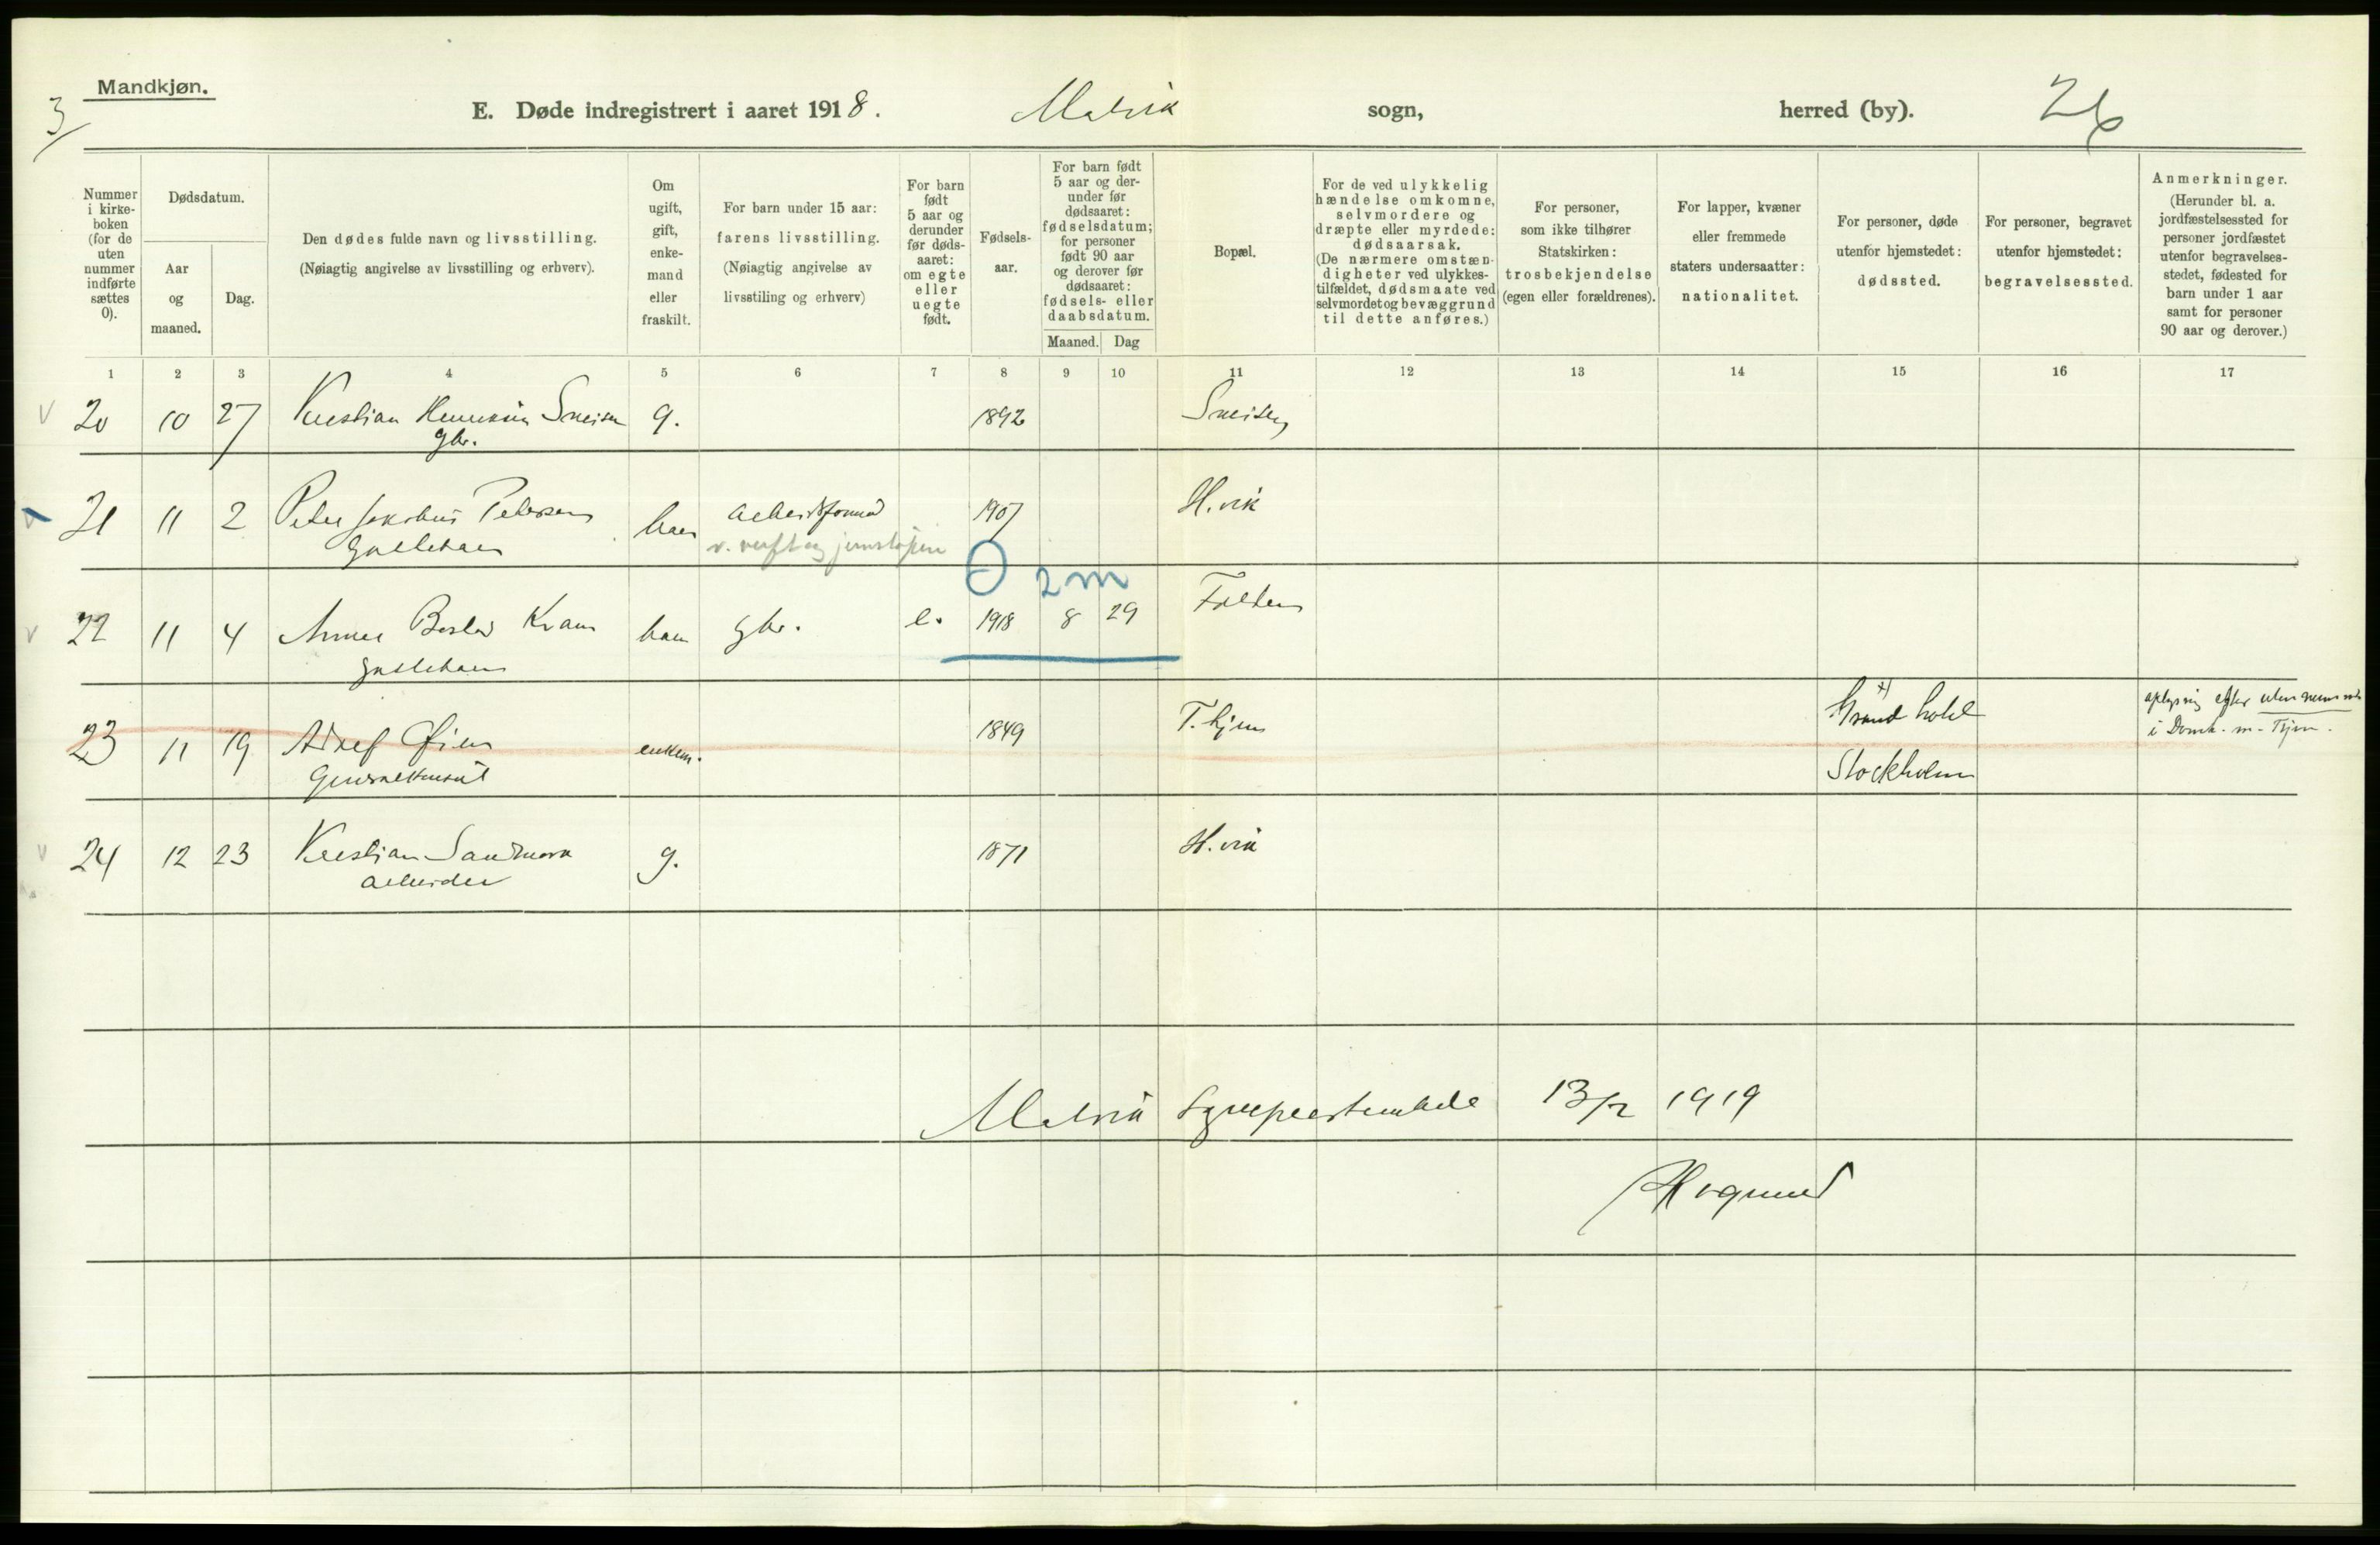 Mandkjøn.
3
E. Døde indregistrert i aaret 1918.
Malvik
sogn,
herred (by).
26
Nummer i kirke-boken (for de uten nummer indførte sættes 0).
Dødsdatum.
Aar og maaned.
Dag.
Den dødes fulde navn og livsstilling.
(Nøiagtig angivelse av livsstilling og erhverv).
Om ugift, gift, enke-mand eller fraskilt.
For barn under 15 aar: farens livsstilling.
(Nøiagtig angivelse av livsstiling og erhverv)
For barn født 5 aar og derunder før døds-aaret: om egte eller uegte født.
Fødsels-aar.
For barn født 5 aar og der-under før dødsaaret: fødselsdatum; for personer født 90 aar og derover før dødsaaret: fødsels- eller daabsdatum.
Maaned.
Dag
Bopæl.
For de ved ulykkelig hændelse omkomne, selvmordere og dræpte eller myrdede: dødsaarsak.
(De nærmere omstæn-digheter ved ulykkes-tilfældet, dødsmaate ved selvmordet og bevæggrund til dette anføres.)
For personer, som ikke tilhører Statskirken: trosbekjendelse (egen eller forældrenes).
For lapper, kvæner eller fremmede staters undersaatter: nationalitet.
For personer, døde utenfor hjemstedet: dødssted.
For personer, begravet utenfor hjemstedet: begravelsessted.
Anmerkninger.
(Herunder bl. a. jordfæstelsessted for personer jordfæstet utenfor begravelses-stedet, fødested for barn under 1 aar samt for personer 90 aar og derover.)
1 2 3 4 5 6 7 8 9 10 11 12 13 14 15 16 17
20 10 27 Kristian g. 1892
gbr.
21 11 2 Peter Jakobus Petersen barn 1907 H.vik
v. verft og
2 m
22 11 4 Kvam barn gbr. e. 1918 8 29
23 11 19 Adolf Øien enkem. 1849 T.hjem Grand hotel
Generalkonsul Stockholm
i Domk. m. T.hjem.
24 12 23 Kristian g. 1871 H.vik
arbeider
Malvik 13/2 1919